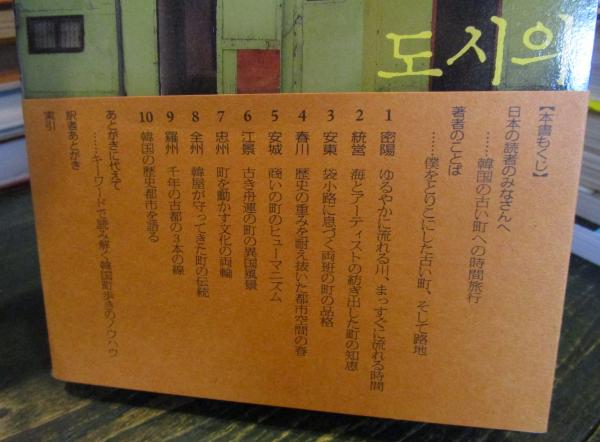 도시의
【本書もくじ】
日本の読者のみなさんへ
……韓国の古い町への時間旅行
著者のことば
……僕をとりこにした古い町、そして路地
1 密陽 ゆるやかに流れる川、まっすぐに流れる時間
2 統営 海とアーティストの紡ぎ出した町の知恵
3 安東 袋小路に息づく両班の町の品格
4 春川 歴史の重みを耐え抜いた都市空間の春
5 安城 商いの町のヒューマニズム
6 江景 古き舟運の町の異国風景
7 忠州 町を動かす文化の両輪
8 全州 韓屋が守ってきた町の伝統
9 羅州 千年の古都の3本の線
10 韓国の歴史都市を語る
あとがきに代えて
……キーワードで読み解く韓国町歩きのノウハウ
訳者あとがき
索引